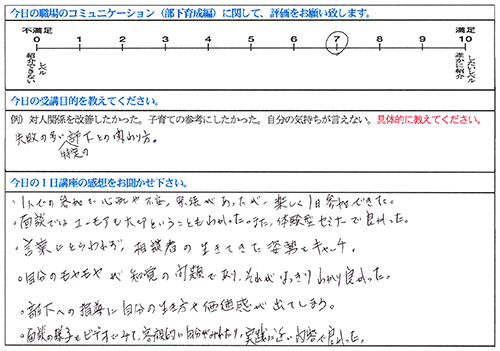 今日の職場のコミュニケーション（部下育成編）に関して、評価をお願い致します。
不満足 満足
0 1 2 3 4 5 6 7 8 9 10
紹介できないレベル
誰かに紹介したいレベル
今日の受講目的を教えてください。
例）対人関係を改善したかった。子育ての参考にしたかった。自分の気持ちが言えない。具体的に教えてください。
失敗の多い部下との関わり方。
特定の
今日の1日講座の感想をお聞かせ下さい。
・1人での参加で心配や不安、緊張があったが、楽しく1日参加できた。
・面談ではユーモアも大切ということもわかった。また、体験型セミナーで良かった。
・言葉にとらわれず、相談者の生きてきた姿勢をキャッチ。
・自分のモヤモヤが知覚の問題であり、それがはっきりわかり良かった。
・部下への指導に自分の生き方や価値感が出てしまう。
・面談の様子をビデオでみて、客観的に自分がみれたり、実践に近い内容で良かった。